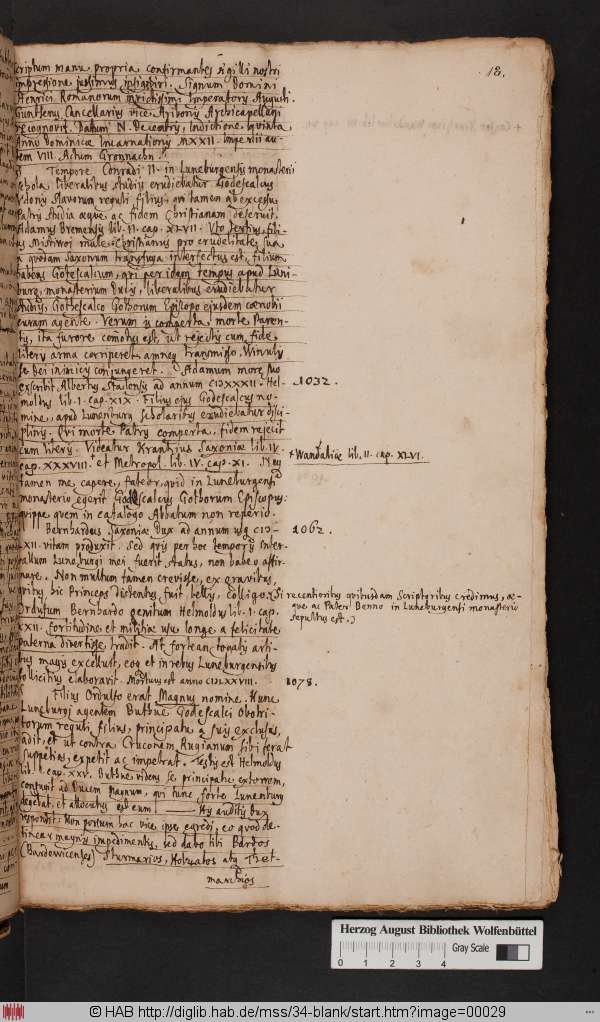 18.
scriptum manu propria confirmantes sigilli nostri
impressione jussimus insigniri. Signum Domini
Henrici Romanorum invictissimi Imperatoris Augusti.
Guntherus Cancellarius vice Aribonis Archicapellani
recognovit. Datum N. Decembris, Indictione quinta
Anno Dominicæ Incarnationis MXXII. Imperii au-
tem VIII Actum Gronnachn.
Tempore Conradi II. in Luneburgensis monasterii
schola liberalibus studiis erudiebatur Godescalcus
Udonis Slavorum reguli filius, qui tamen ob excessum
Patris studia æque ac fidem Christianam deseruit.
Adamus Bremensis lib. II. cap. XLVII. Uto fili-
us Mistiwoi male Christianus pro crudelitate sua
a quodam Saxonum transfuga interfectus est, filium
habens Gotescalcum, qui per idem tempus apud Luni-
burg, monasterium Ducis, liberalibus erudiebatur
studiis, Gothescalco Gothorum Episcopo ejusdem cœnobii
curam agente. Verum is comperta morte Paren-
tis, ita furore comotus est, ut rejectis cum fide
literis arma corriperet, amneq transmisso, Winulis
se Dei inimicis conjungeret. Adamum more suo
exscribit Albertus Stadensis ad annum CIƆXXXII. Hel-
1032.
moldus lib. I. cap. XIX. Filius ejus Godescalcus no-
mine, apud Lunenburg scholaribus erudiebatur disci-
plinis. Qui morte Patris comperta, fidem rejecit
cum literis. Videatur Krantzius Saxoniæ lib. IV.
+ Wandaliæ lib. II. cap. XLVI.
cap. XXXVIII + et Metropol. lib. IV. cap. XI. Neq
tamen me capere, fateor, quid in Luneburgensi
monasterio egerit Godescalcus Gothorum Episcopus:
quippe quem in catalogo Abbatum non reperio.
Bernhardus Saxoniæ Dux ad annum usq CIƆ-
1062.
XII. vitam produxit. Sed quis per hoc temporis inter-
vallum Luneburgi mei fuerit status, non habeo affir-
mare. Non multum tamen crevisse, ex gravibus,
quibus hic Princeps districtus fuit bellis, colligo. (Si
recentioribus quibusdam Scriptoribus credimus, æ-
que ac Pater Benno in Luneburgensi monasterio
sepultus est.)
Ordulfum Bernhardo genitum Helmoldus lib. I. cap.
XXII. fortitudine et militiæ usu longe a felicitate
paterna divertisse, tradit. At fortean togatis arti-
bus magis excelluit, eoq et in rebus Luneburgensibus
sollicitius elaboravit. Mortuus est anno CIƆLXXVIII.
1078.
Filius Ordulfo erat Magnus nomine. Hunc
Luneburgi agentem Buthue Godescalci Obotri-
torum reguli filius, principatu a suis exclusus,
adit, et ut contra Cruconem Rugianum sibi ferat
suppetias, expetit ac impetrat. Testis est Helmoldus
lib. I. cap. XXV. Buthue videns se principatu extorrem,
contulit ad Ducem Magnum, qui tunc forte Lunenburg
degebat, et allocutus est eum —— His auditis Dux
respondit: Non possum hac vice ipse egredi, eo quod de-
tinear magnis impedimentis, sed dabo tibi Bardos
(Bardowicenses) Sturmarios, Holzatos atq Thet-
marchos
Herzog August Bibliothek Wolfenbüttel
Gray Scale
0 1 2 3 4
© HAB http://diglib.hab.de/mss/34-blank/start.htm?image=00029